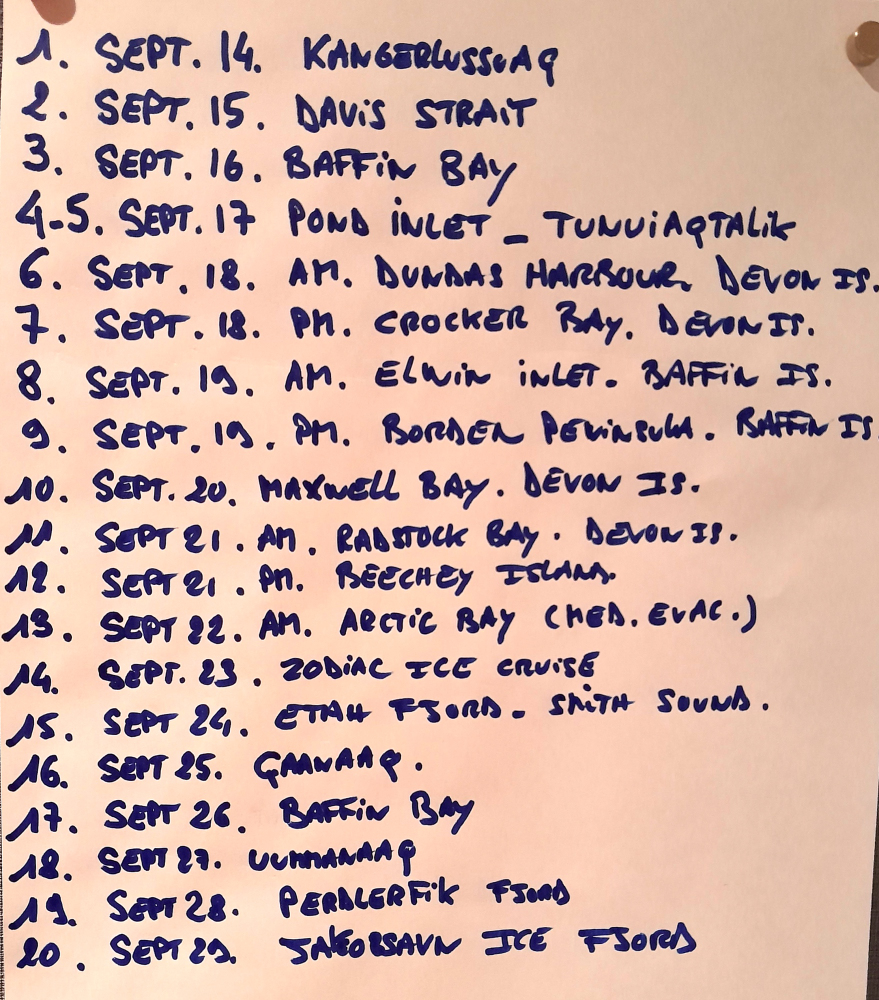 1. SEPT. 14. KANGERLUSSUAQ
2. SEPT. 15. DAVIS STRAIT
3. SEPT. 16. BAFFIN BAY
4-5. SEPT. 17 POND INLET - TUNUIAQTALIK
6. SEPT. 18. AM. DUNDAS HARBOUR. DEVON IS.
7. SEPT. 18. PM. CROCKER BAY. DEVON IS.
8. SEPT. 19. AM. ELWIN INLET. BAFFIN IS.
9. SEPT. 19. PM. BORDEN PENINSULA. BAFFIN IS.
10. SEPT. 20. MAXWELL BAY. DEVON IS.
11. SEPT 21. AM. RADSTOCK BAY. DEVON IS.
12. SEPT 21. PM. BEECHEY ISLAND.
13. SEPT 22. AM. ARCTIC BAY (MED. EVAC.)
14. SEPT. 23. ZODIAC ICE CRUISE
15. SEPT 24. ETAH FJORD - SMITH SOUND.
16. SEPT 25. QAANAAQ.
17. SEPT 26. BAFFIN BAY
18. SEPT 27. UUMMANAAQ
19. SEPT 28. PERDLERFIK FJORD
20. SEPT 29. JAKOBSAVN ICE FJORD